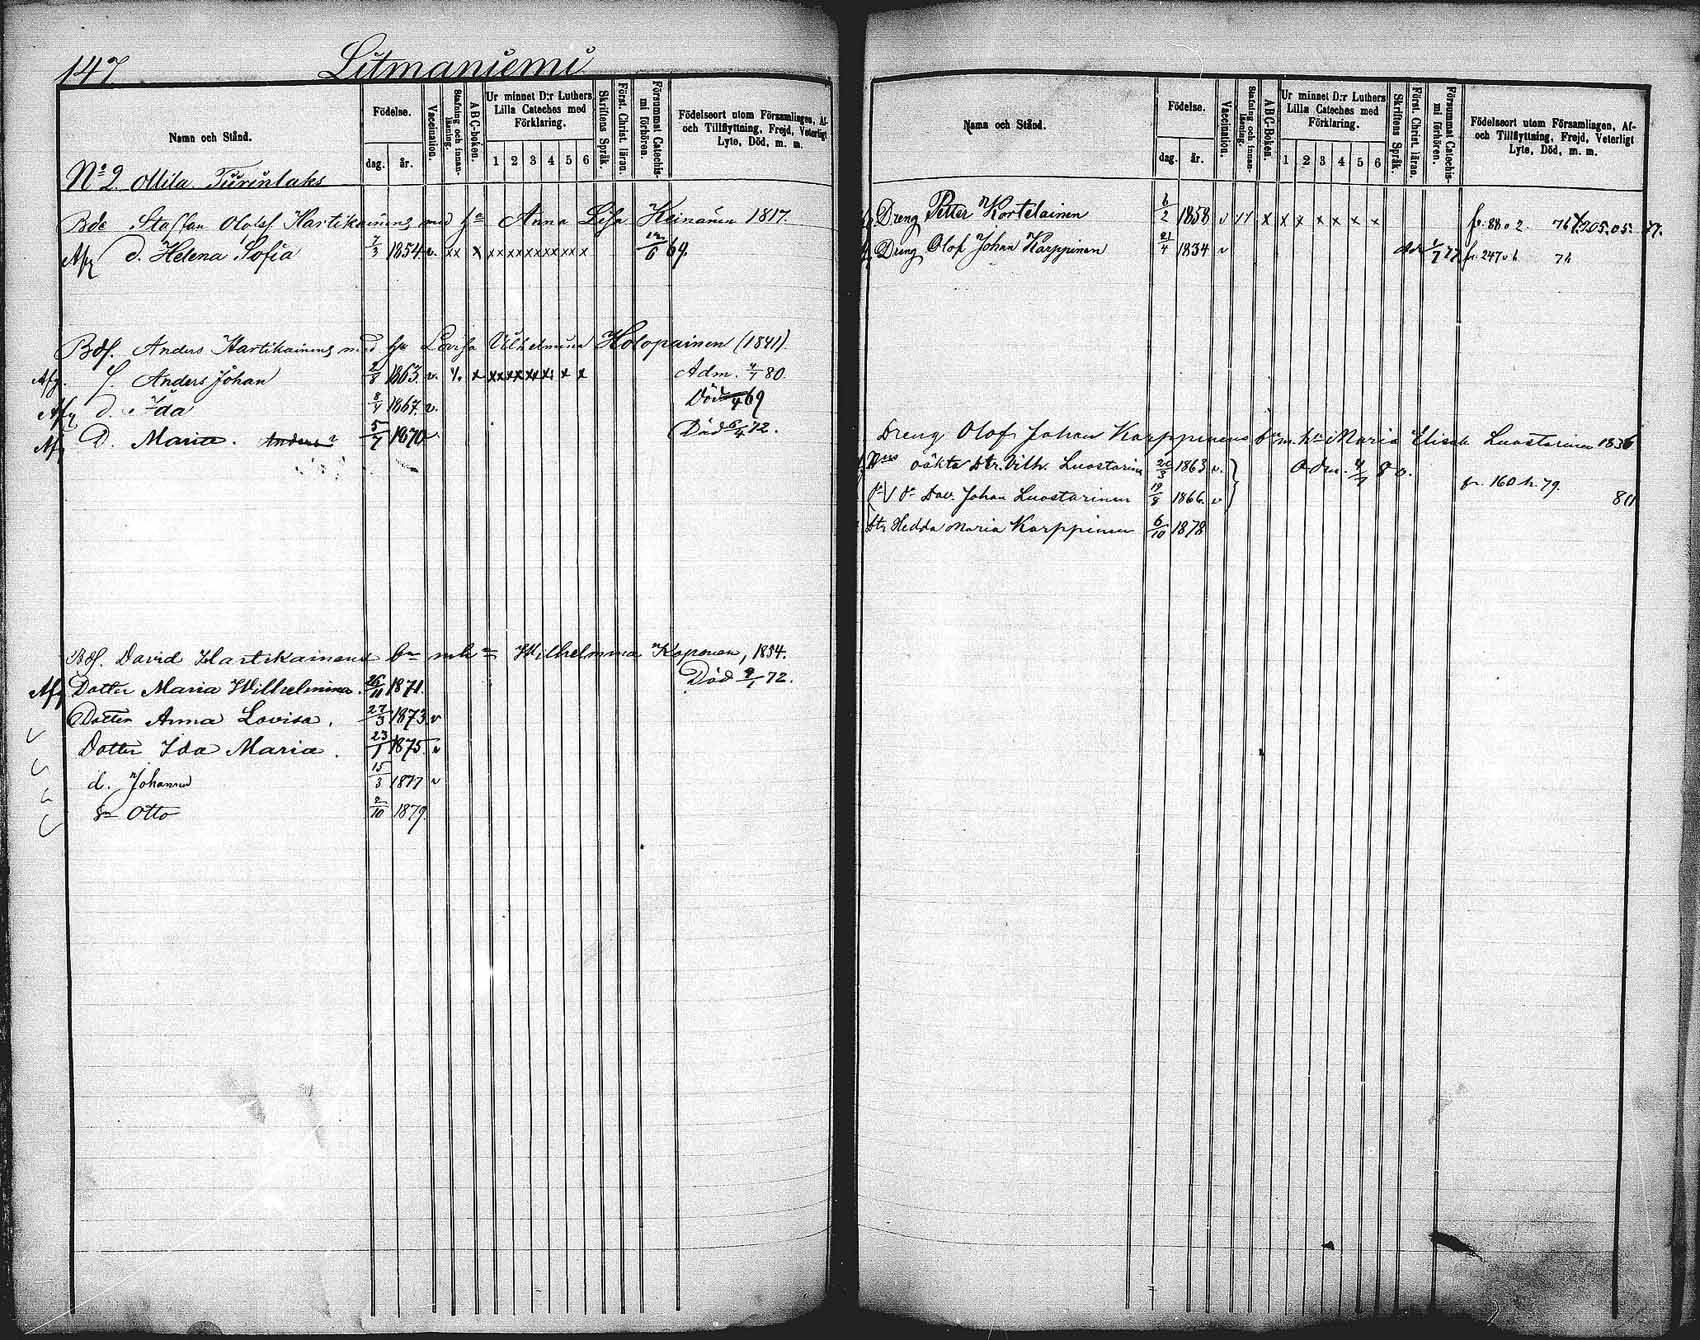 147 Litmaniemi
Namn och Stånd.
Födelse.
dag. år.
Vaccination.
Stafning och innan-läsning.
ABC-boken.
Ur minnet D:r Luthers Lilla Cateches med Förklaring.
1 2 3 4 5 6
Skriftens Språk.
Först. Christ. läran.
Försummat Catechis-mi förhören.
Födelseort utom Församlingen, Af- och Tillflyttning, Frejd, Veterligt Lyte, Död, m. m.
No 2
Bde Staffan Olofsf Hartikainens med hu Anna Lisa Heinänen 1817.
Afg d. Helena Sofia 7/3 1854 v. xx x xxxxxxxx x x 69.
Bdf. Anders Hartikainens med hu Lovisa Vilhelmina Holopainen (1841).
Afg. S. Anders Johan 2/8 1863. v. x xxxxxx x x Adm. 4/7 80.
Afg d. Ida 8/4 1867. v. Död 69
Afg D. Maria. Anders? 5/7 1870 v. Död 6/4 72.
Bdf. David Hartikainens bn mh Wilhelmina Koponen, 1854.
Afg Dotter Maria Wilhelmina. 26/11 1871. Död 2/1 72.
Dotter Anna Lovisa. 27/3 1873. v
Dotter Ida Maria. 23/1 1875. v
d. Johanna 15/3 1877 v
Sn Otto 2/10 1879.
Namn och Stånd.
Födelse.
dag. år.
Vaccination.
Stafning och innan-läsning.
ABC-Boken.
Ur minnet D:r Luthers Lilla Cateches med Förklaring.
1 2 3 4 5 6
Skriftens Språk.
Först. Christ. läran.
Försummat Catechis-mi förhören.
Födelseort utom Församlingen, Af- och Tillflyttning, Frejd, Veterligt Lyte, Död, m. m.
Dreng Petter Kortelainen 6/2 1858 v x x x x x x x fr. 88 o 2. 76 105. 05. 77.
Dreng Olof Johan Karppinen 21/4 1834 v fr. 247 76
Dreng Olof Johan Karppinens bn m. hu Maria Elisab Luostarinen 1836
oäkta dtr. Vilh. Luostarinen 1863 v. adm. 4/7 80.
Dav. Johan Luostarinen 19/8 1866. v fr. 160 h. 79.
dtr Hedda Maria Karppinen 6/10 1878